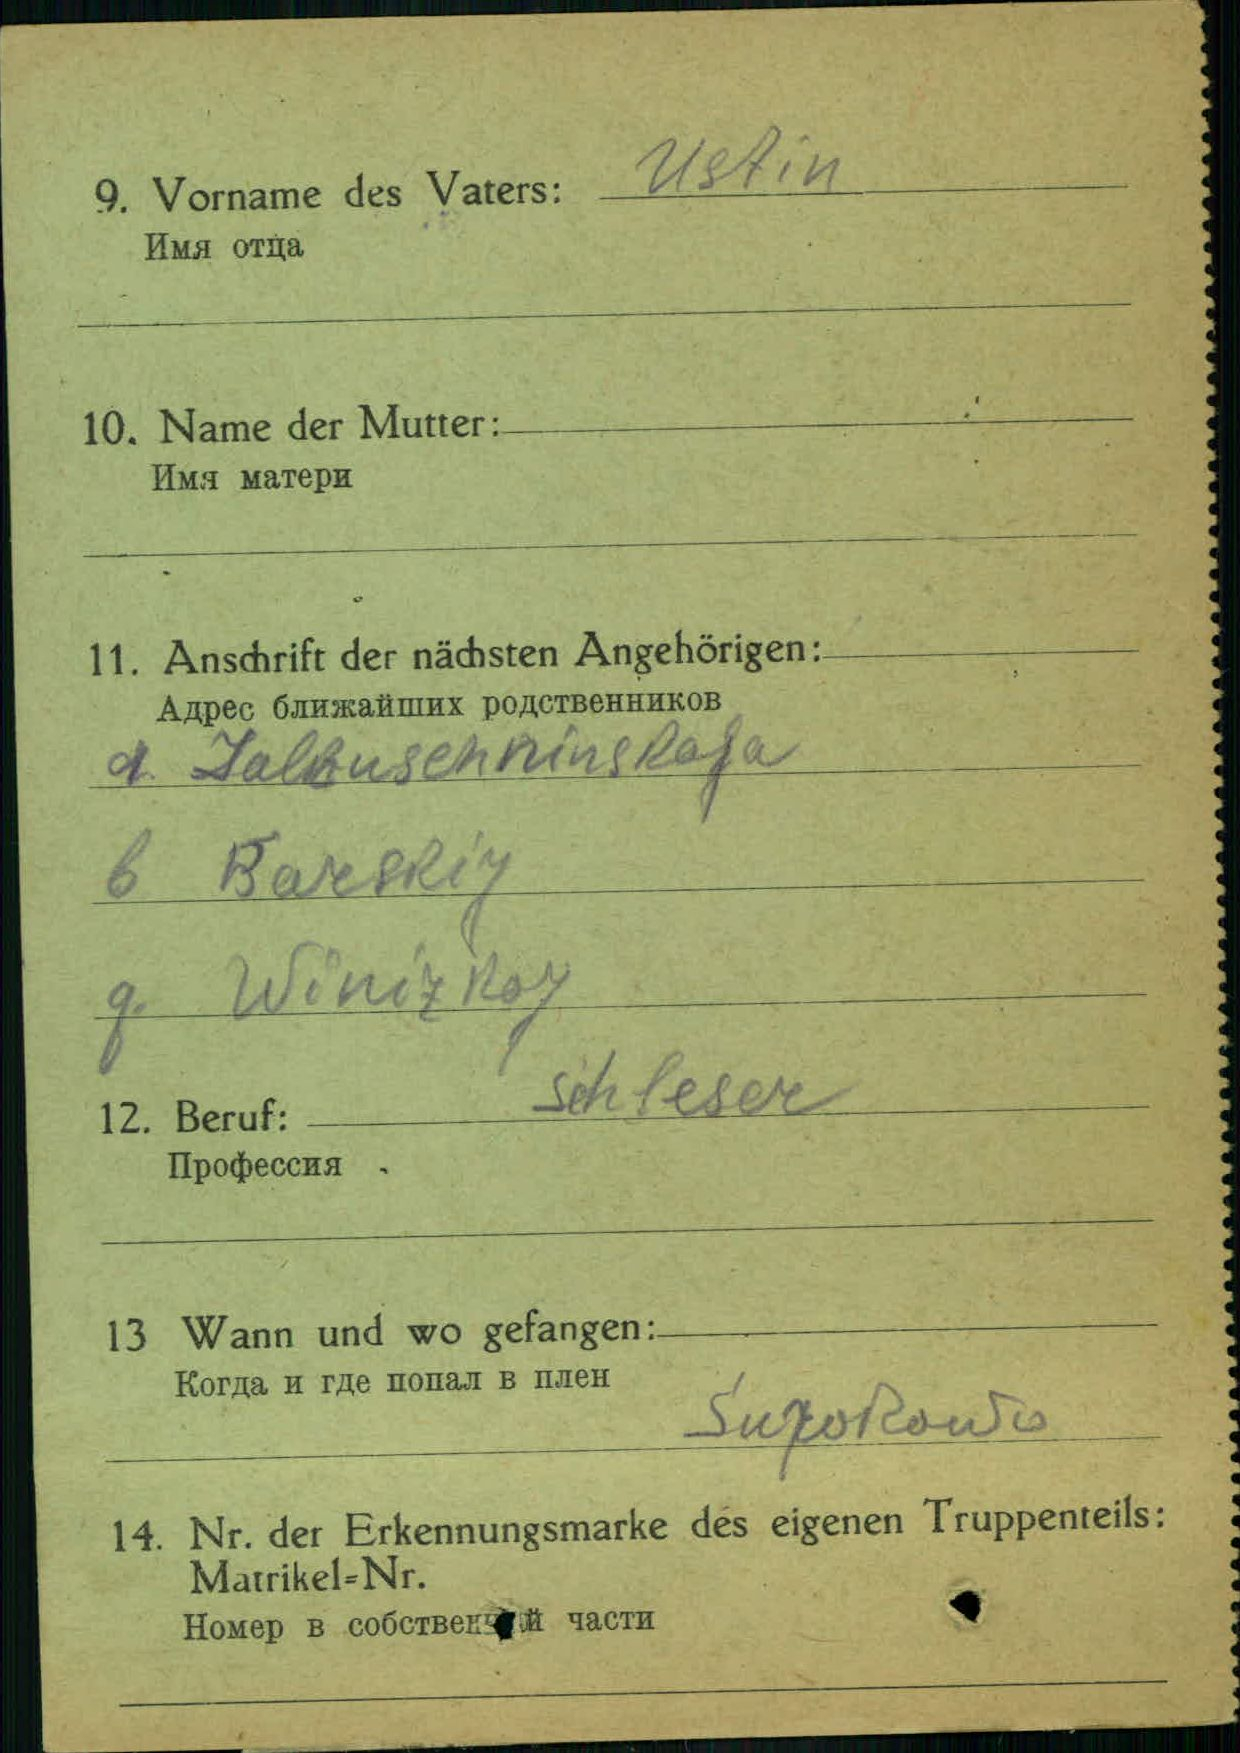 9. Vorname des Vaters: Ustin
Имя отца
10. Name der Mutter:
Имя матери
11. Anschrift der nächsten Angehörigen:
Адрес ближайших родственников
d.
b Barskiy
g. Winizkoy
12. Beruf: Schleser
Профессия
13 Wann und wo gefangen:
Когда и где попал в плен
14. Nr. der Erkennungsmarke des eigenen Truppenteils:
Matrikel=Nr.
Номер в собственной части